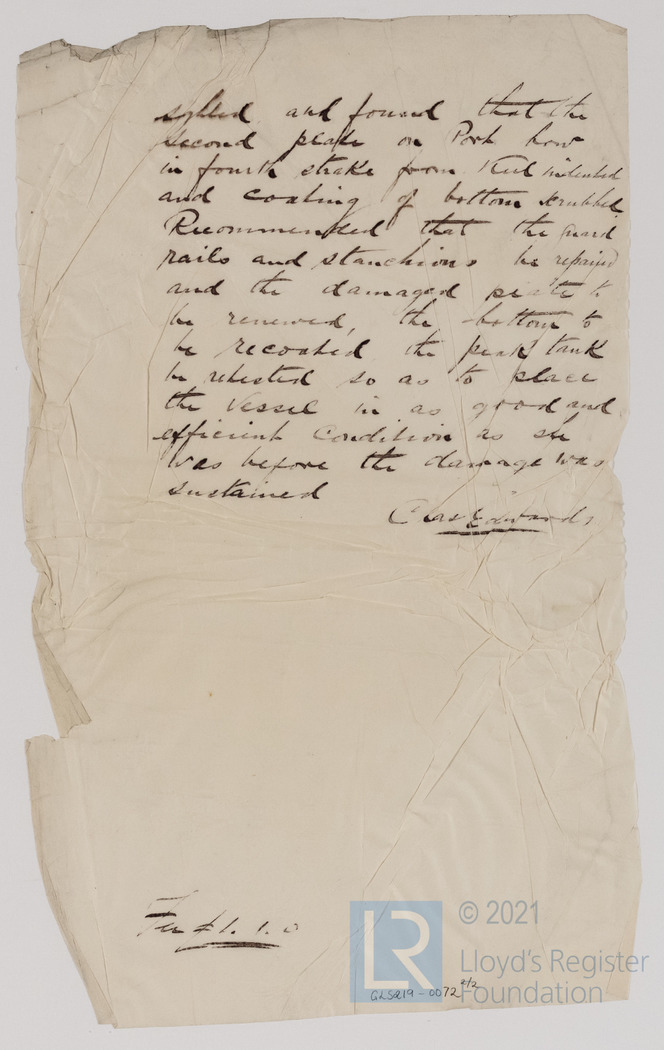 sighted and found that the
second plate on Port bow
in fourth strake from Keel indented
and coating of bottom scrubbed
Recommended that the guard
rails and stanchions be repaired
and the damaged plate to
be renewed, the bottom to
be recoated the peak tank
be retested so as to place
the Vessel in as good and
efficient condition as she
was before the damage was
sustained
Chas Edwards
Fee £1. 1. 0
© 2021
LR
Lloyd's Register
Foundation
GLSR19-0072 2/2